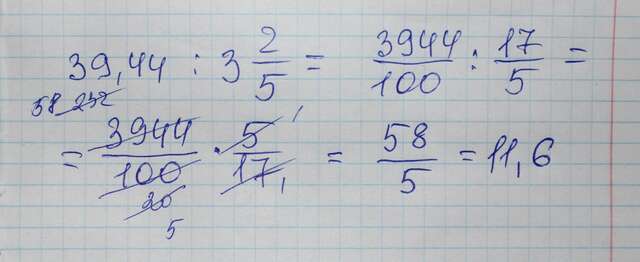 39,44 : 3 2/5 = 3944/100 : 17/5 =
58 232
= 3944/100 · 5/17 = 58/5 = 11,6
1
20 1
5